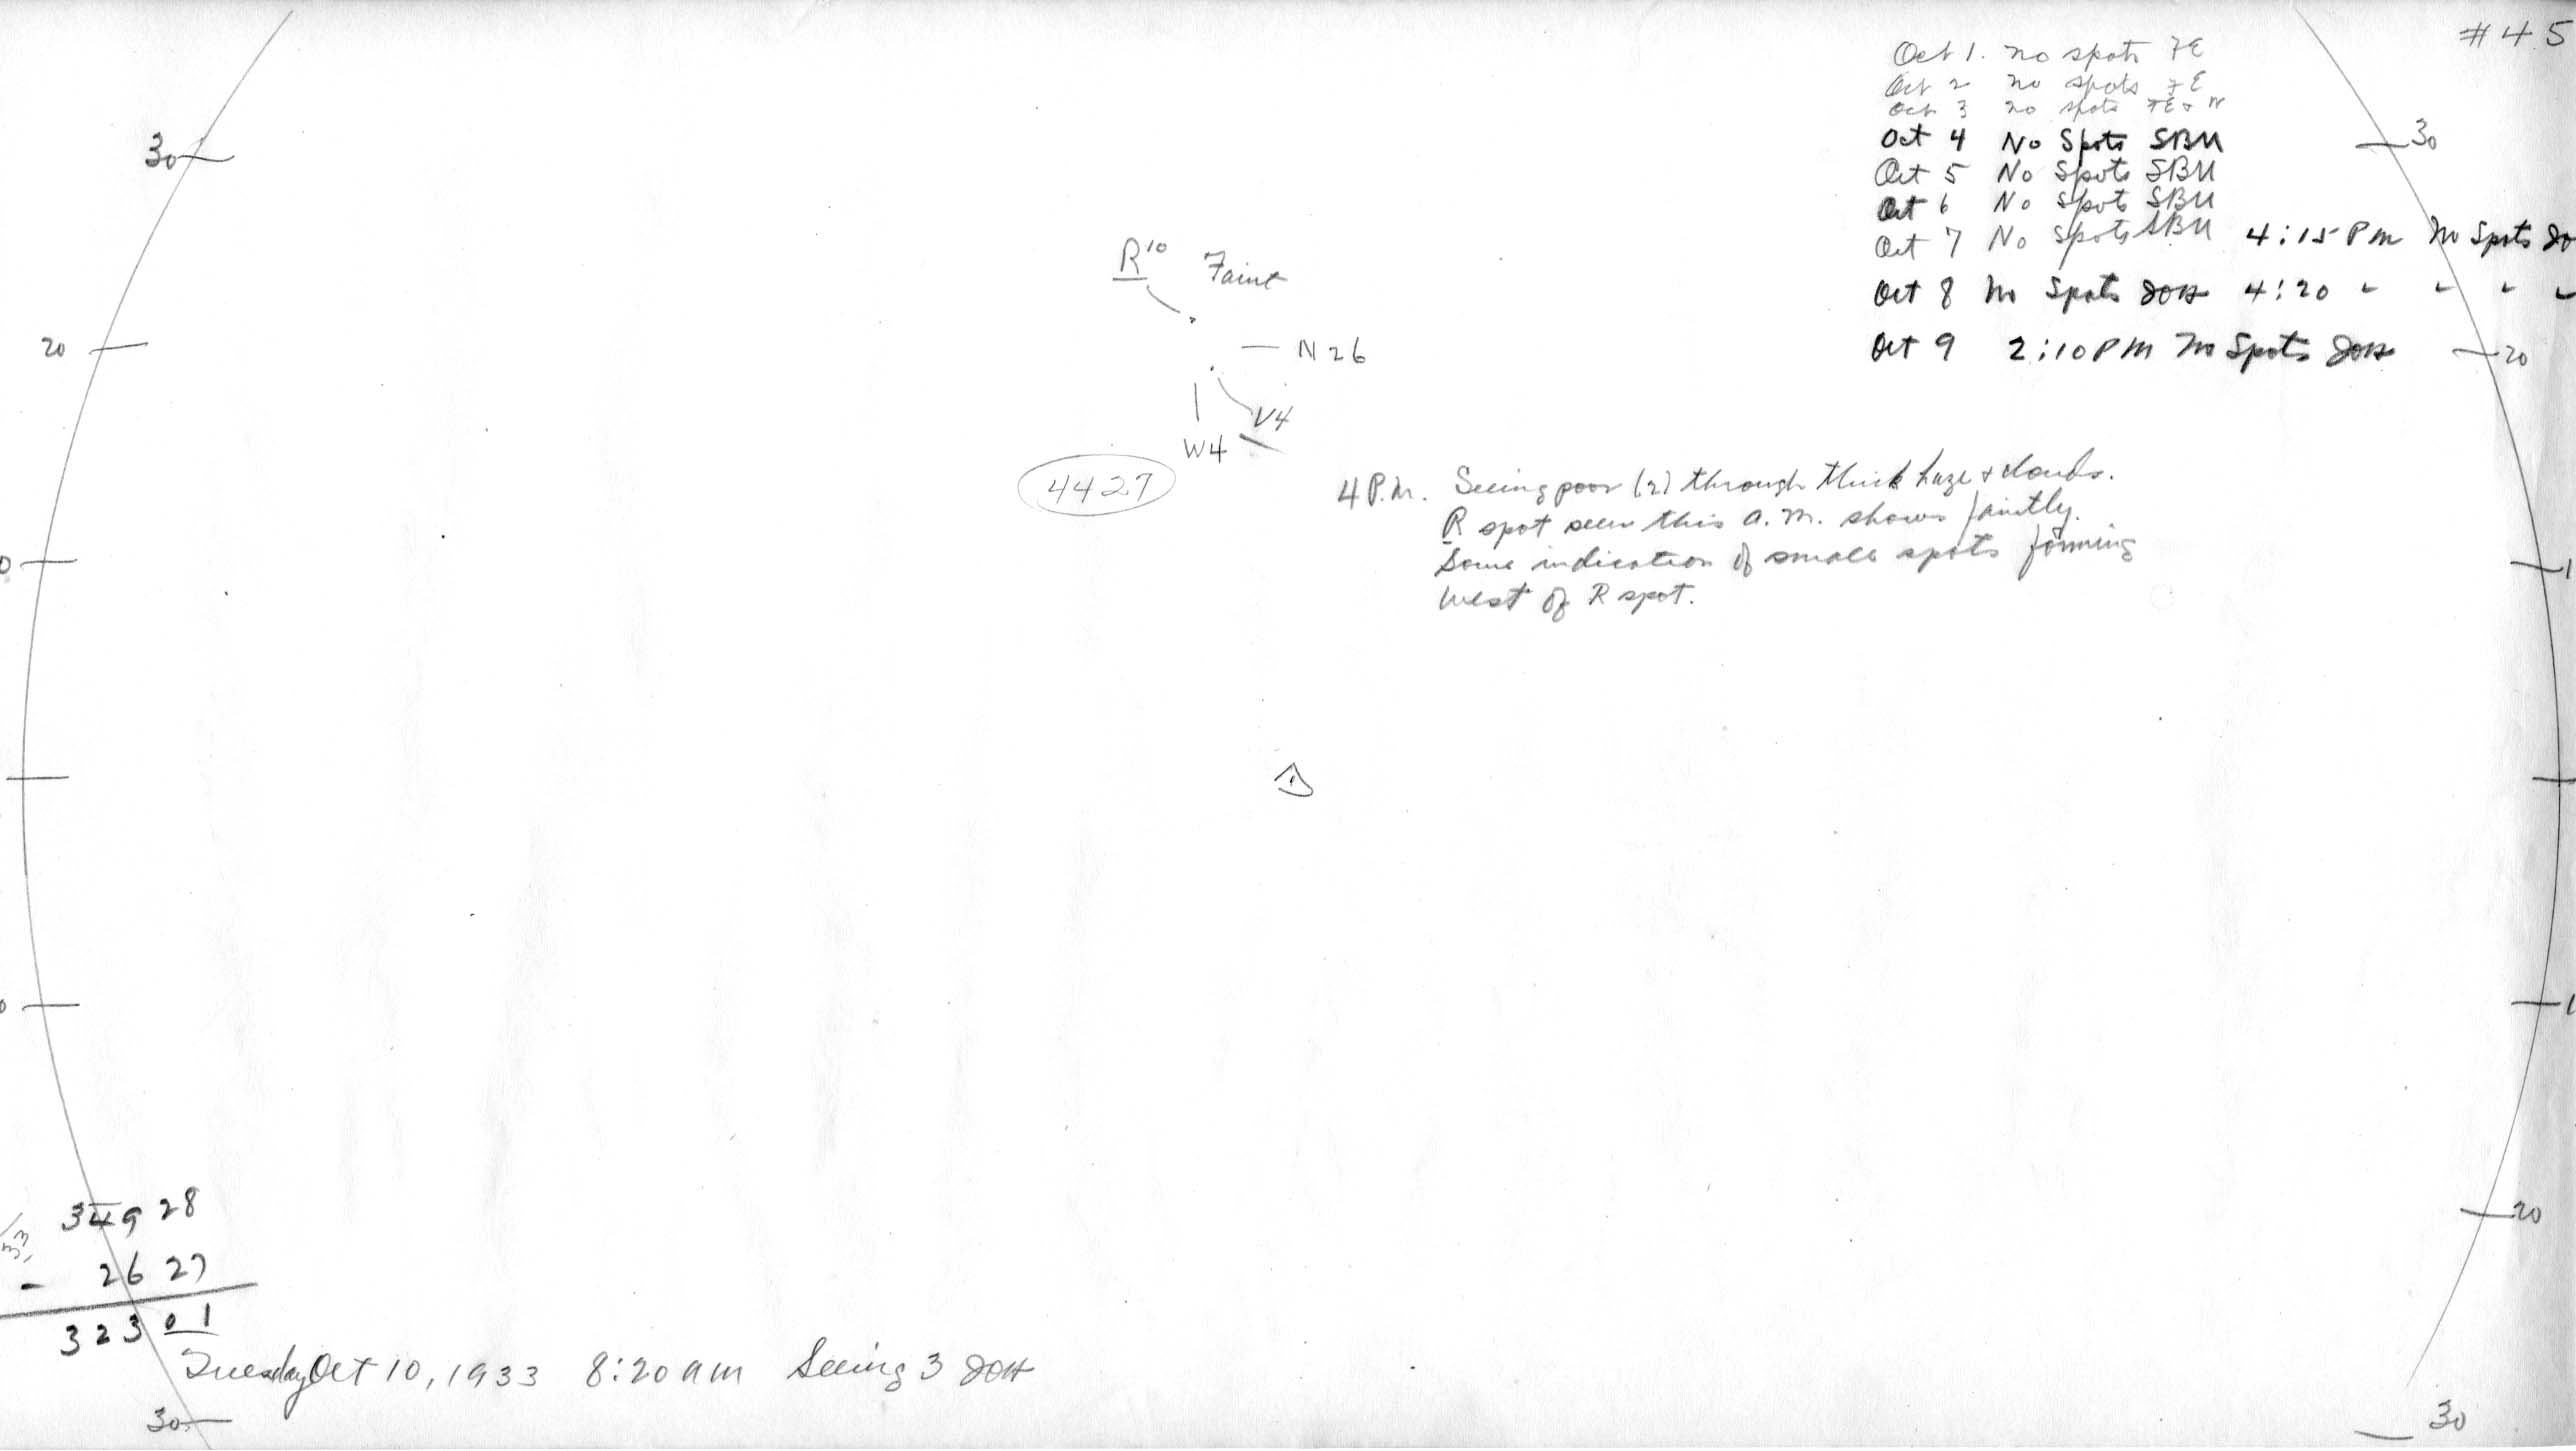 #45
Oct 1. no spots FE
Oct 2 no spots FE
Oct 3 no spots FE + N
Oct 4 No Spots SBN
Oct 5 No Spots SBN
Oct 6 No Spots SBN
Oct 7 No Spots SBN 4:15 Pm No Spots
Oct 8 No Spots JOH 4:20 " " " "
Oct 9 2:10 PM No Spots JOH
30
30
20
20
R10 Faint
N26
V4
W4
4427
4 P.M. Seeing poor (2) through thick haze & clouds.
R spot seen this a.m. shows faintly.
Some indication of small spots forming
west of R spot.
0
1
0
1
34928
- 2627
32301
20
33
Tuesday Oct 10, 1933 8:20 am Seeing 3 JOH
30
30